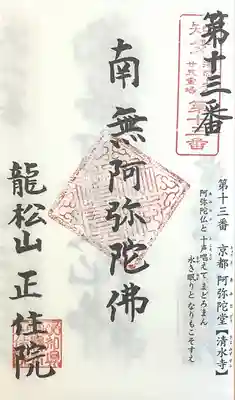 第十三番
第十三番 京都 阿弥陀堂【清水寺】
阿弥陀仏と 十声唱えて まどろまん
永き眠りと なりもこそすえ
南無阿弥陀佛
龍松山 正住院